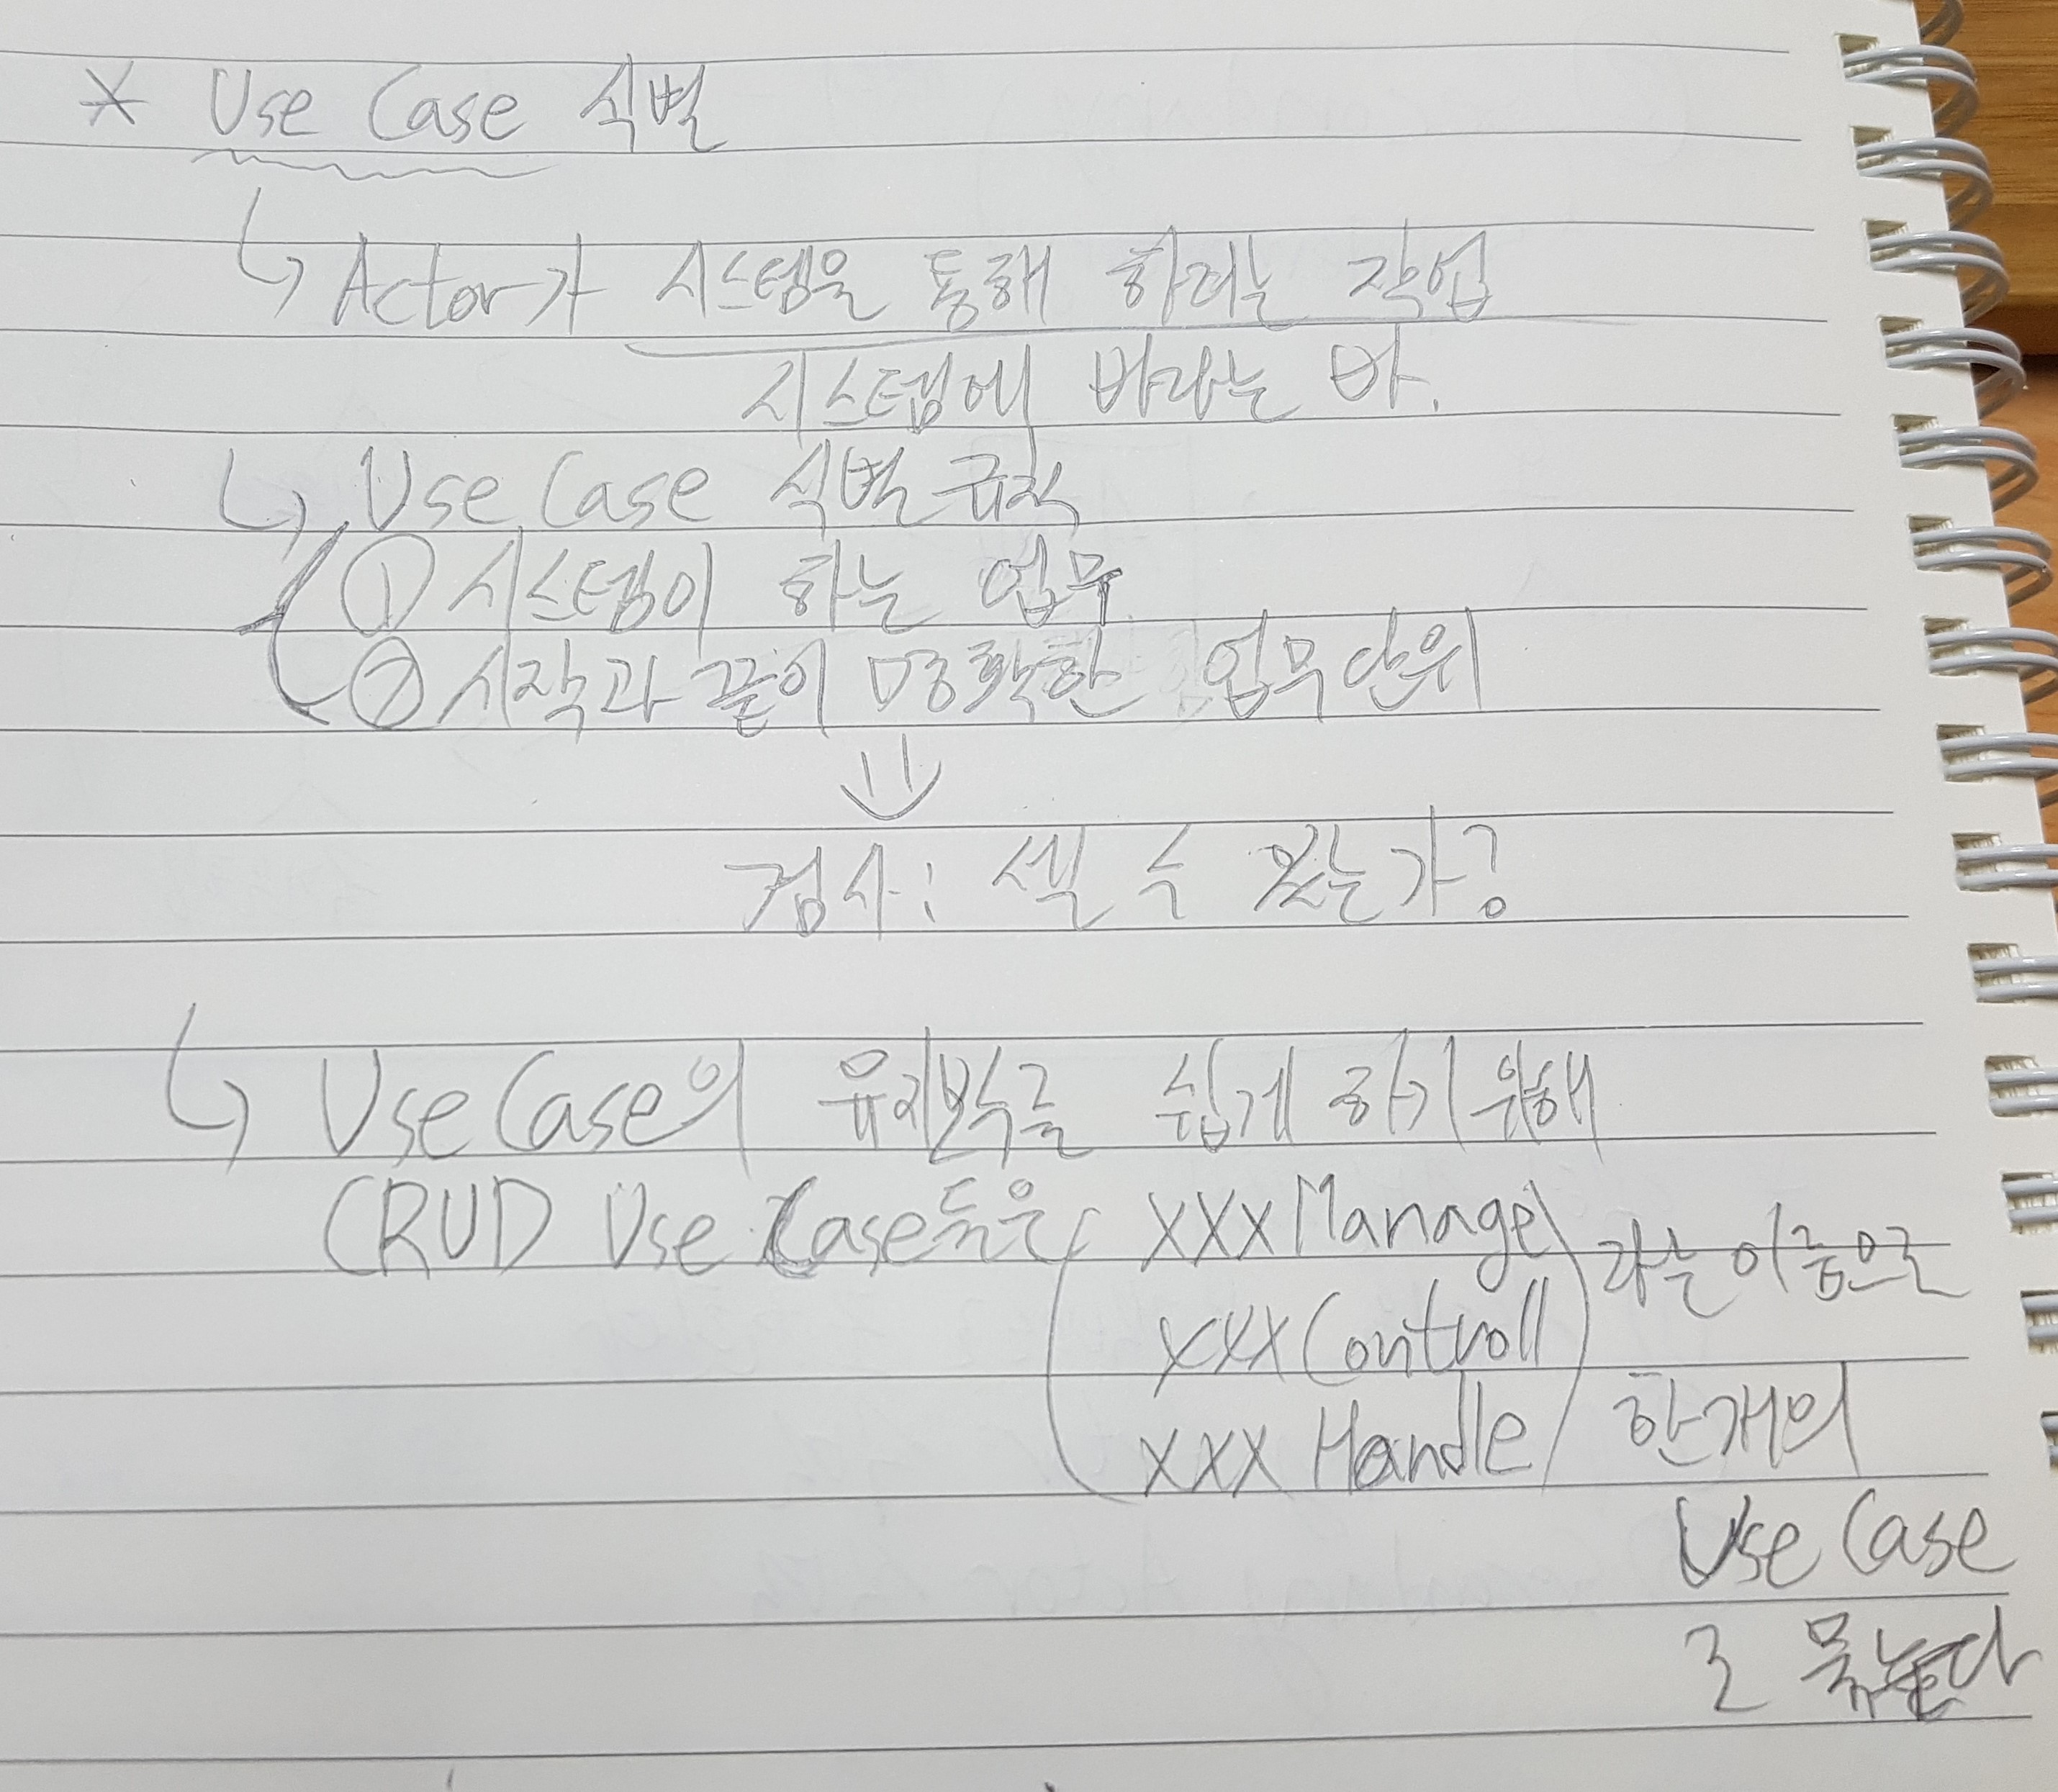 * Use Case 식별
↳ Actor가 시스템을 통해 하려는 작업
시스템에 바라는 바.
↳ Use Case 식별 규칙
① 시스템이 하는 업무
② 시작과 끝이 명확한 업무 단위
⇓
검사: 셀 수 있는가?
↳ Use Case의 유지보수를 쉽게 하기 위해
CRUD Use Case들은 ( xxx Manage ) 라는 이름으로
xxx Controll
xxx Handle 한개의
Use Case
로 묶는다